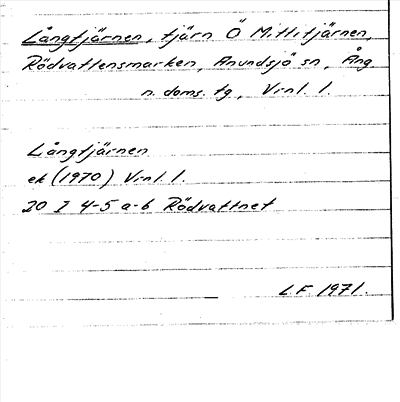 Långtjärnen, tjärn Ö Mittitjärnen,
Rödvattensmarken, Anundsjö sn, Ång
n. doms. tg, Vrnl. l.
Långtjärnen
ek (1970) Vrnl. l.
20 I 4-5 a-b Rödvattnet
L.F. 1971.